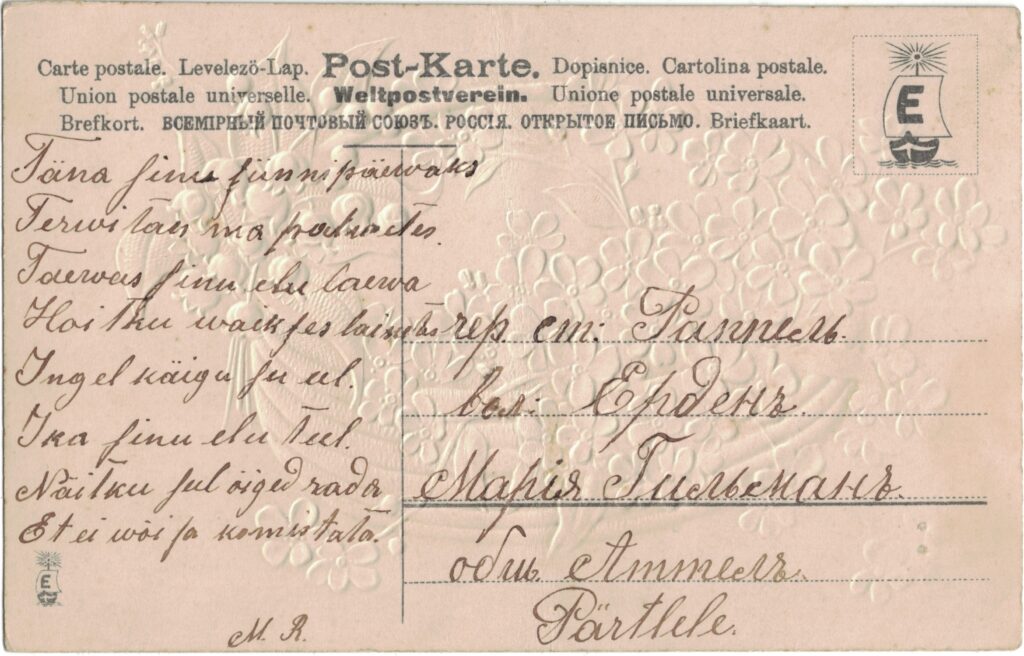 Carte postale. Levelezö-Lap. Post-Karte. Dopisnice. Cartolina postale.
Union postale universelle. Weltpostverein. Unione postale universale.
Brefkort. ВСЕМІРНЫЙ ПОЧТОВЫЙ СОЮЗЪ. РОССІЯ. ОТКРЫТОЕ ПИСЬМО. Briefkaart.
E
Täna sinu sünnipäewaks
Terwitan ma
Taewas sinu elu laewa
Hoitku waikses lainetes
Ingel käigu su eel.
Ika sinu elu teel.
Näitku sul õiged rada
Et ei wõi sa komistata.
E
M. R.
чер. ст: Раппель.
вол: Ерденъ.
Марія Гильманъ.
общ. Аттель.
Pärtlele.